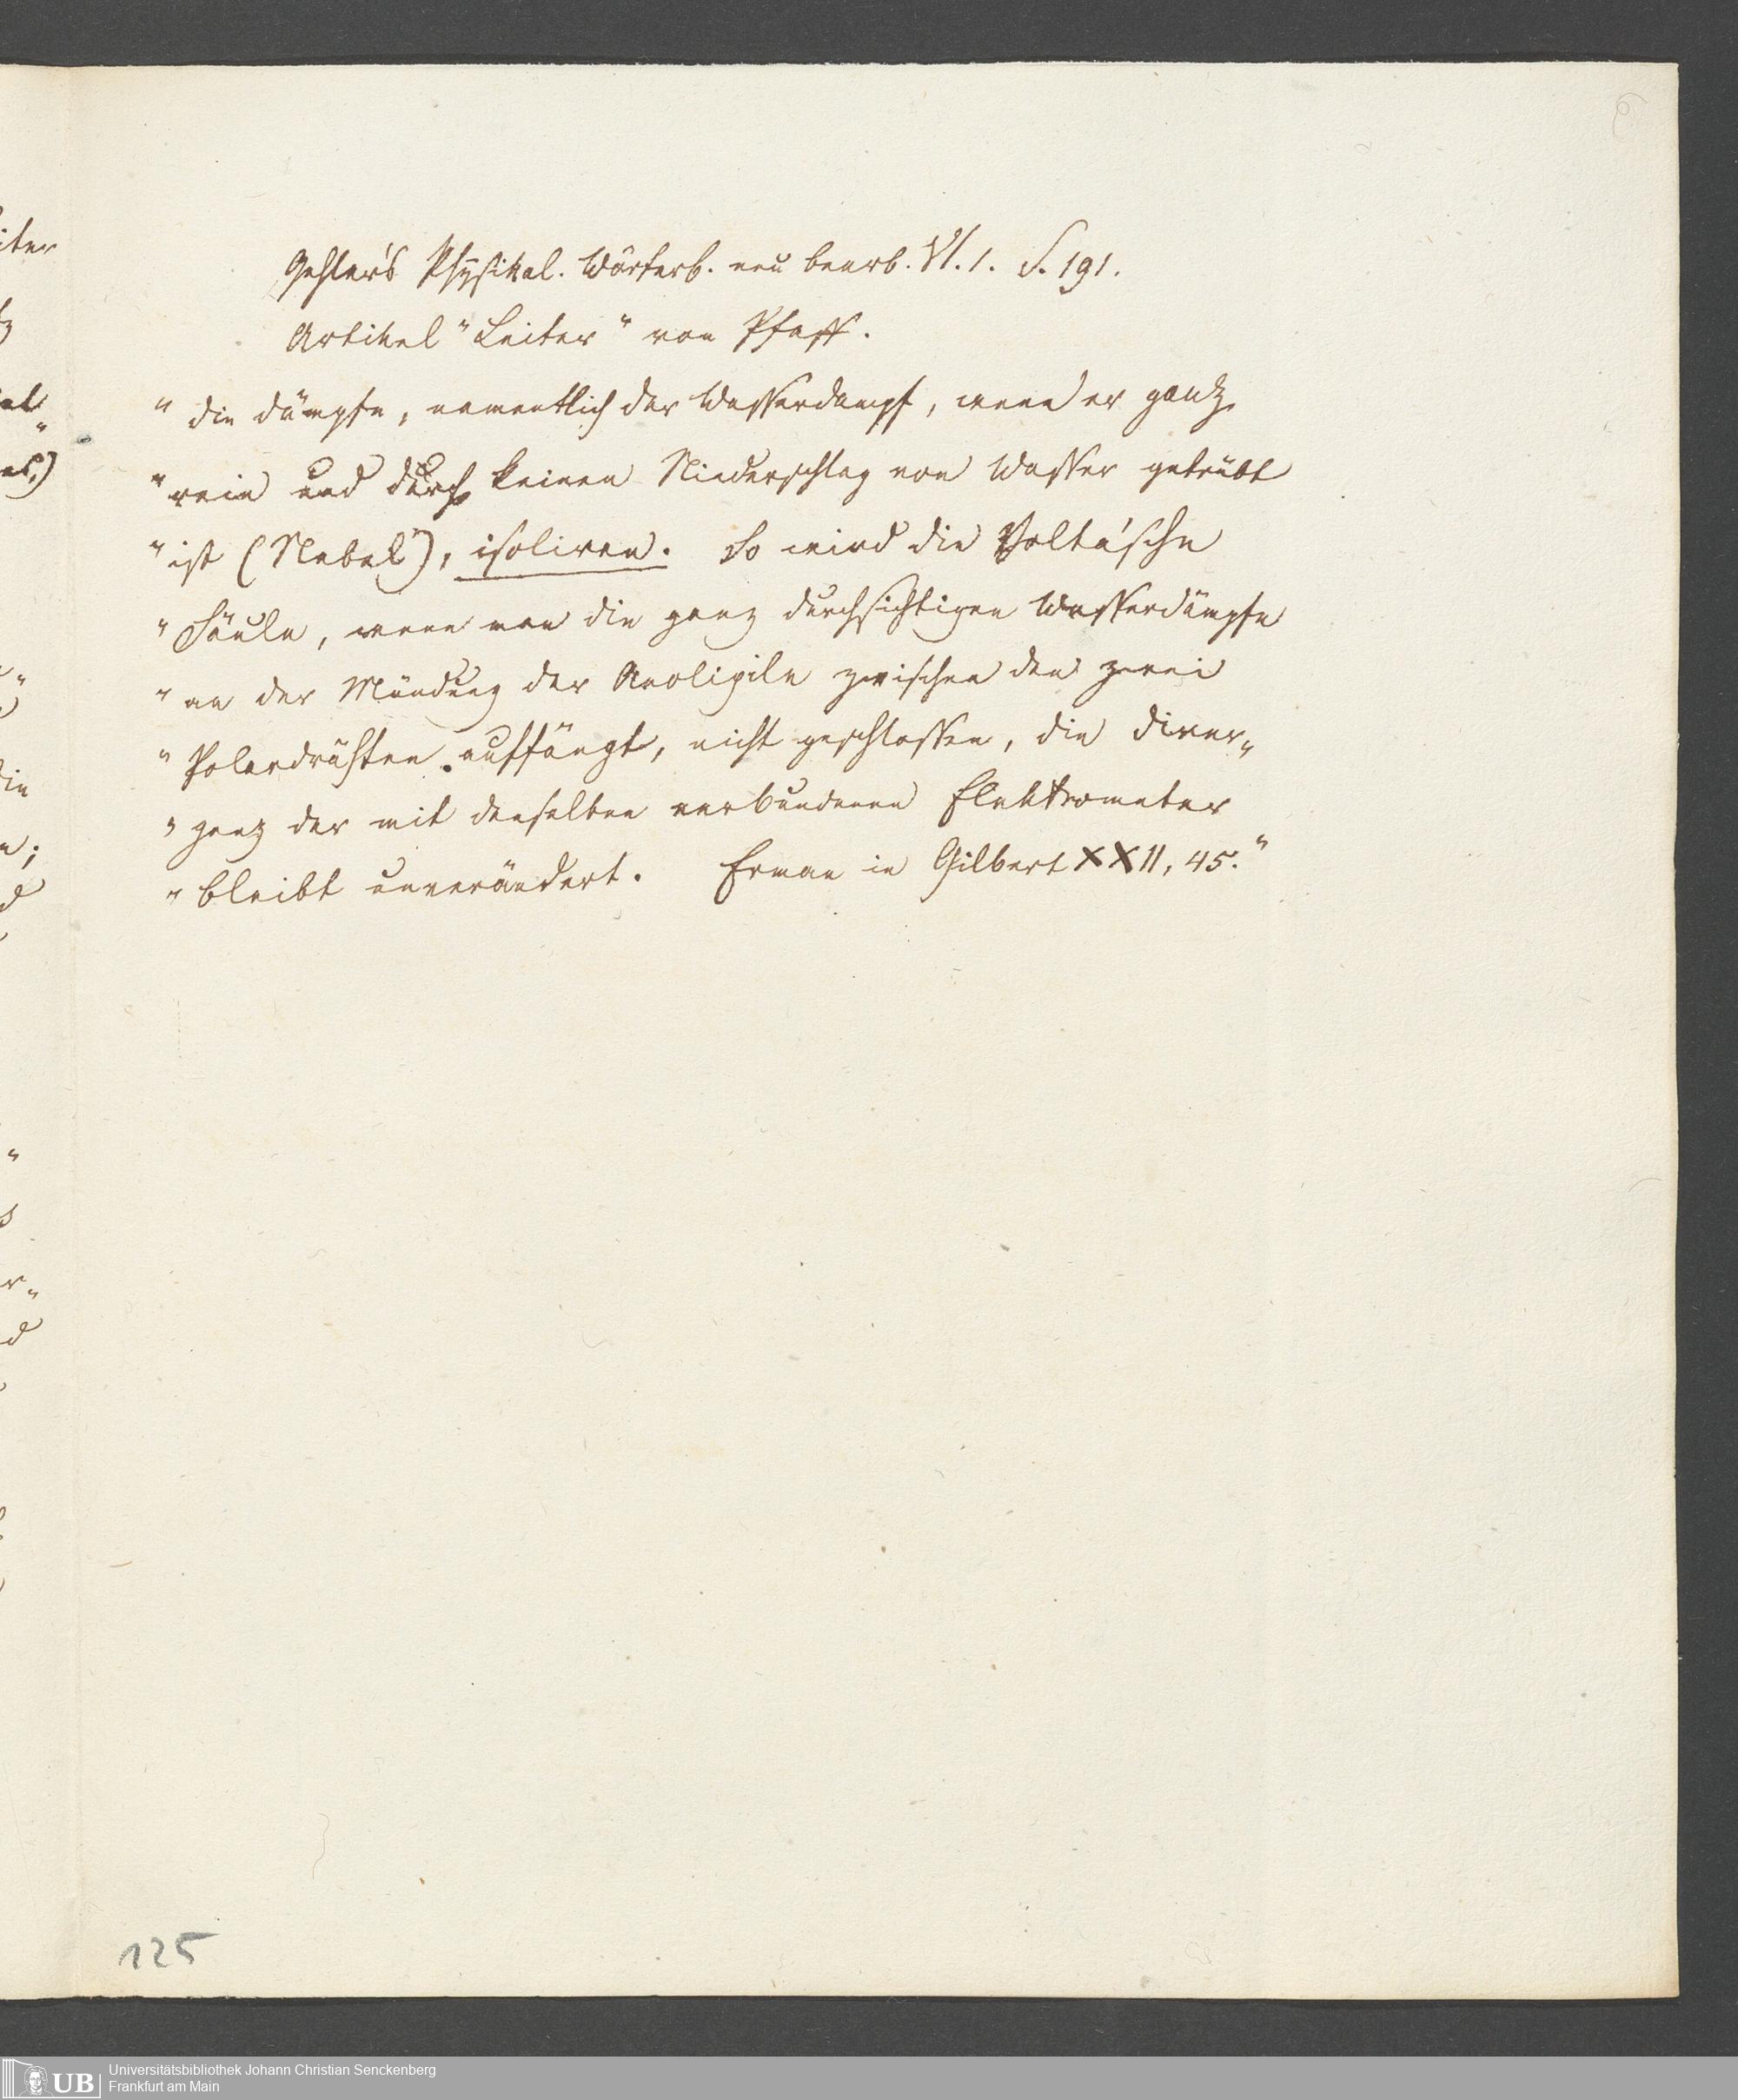 Gehler's Physikal. Wörterb. neu bearb. VI. 1. S. 191.
Artikel "Leiter" von Pfaff.
" die Dämpfe, namentlich der Wasserdampf, wenn er ganz
" rein und durch keinen Niederschlag von Wasser getrübt
" ist (Nebel), isoliren. So wird die Volta'sche
" Säule, wenn man die ganz durchsichtigen Wasserdämpfe
" an der Mündung der Aeolipile zwischen den zwei
" Polardrähten auffängt, nicht geschlossen, die Diver„
" genz der mit denselben verbundenen Elektrometer
" bleibt unverändert. Erman in Gilbert XXII, 45."
125
iter
es.)
UB Universitätsbibliothek Johann Christian Senckenberg
Frankfurt am Main